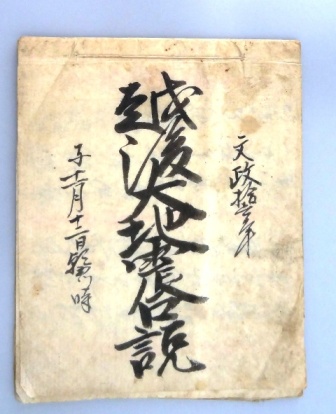 文政拾壱年
越後大地震口説
子十一月十二日時